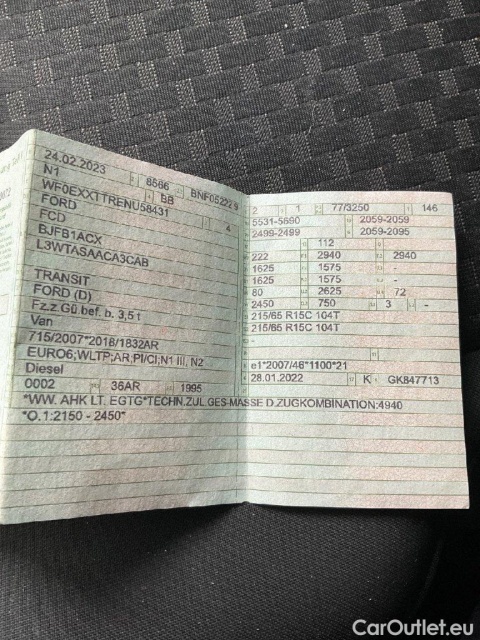 24.02.2023 8566 BNF05222 9
N1 BB
WF0EXXTTRENU58431
FORD 4
FCD
BJFB1ACX
L3WTASAACA3CAB
TRANSIT
FORD (D)
Fz.z.Gü.bef. b. 3,5 t
Van
715/2007*2018/1832AR
EURO6;WLTP;AR,PI/CI; N1 III, N2
Diesel
0002 36AR 1995
2 1 77/3250 146
5531-5690 2059-2059
2499-2499 2059-2095
112
222 2940 2940
1625 1575 -
1625 1575 -
80 2625 72
2450 750 3 -
215/65 R15C 104T
215/65 R15C 104T
-
e1*2007/46*1100*21
28.01.2022 K GK847713
*WW. AHK LT. EGTG*TECHN.ZUL.GES-MASSE D.ZUGKOMBINATION:4940
*O.1:2150 - 2450*
CarOutlet.eu